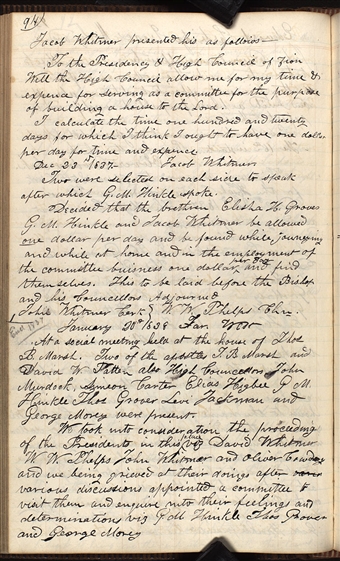 94
Jacob Whitmer presented his as follows—
To the Presidency & High Council of Zion
Will the High Council allow me for my time &
expence for serving as a committee for the purpose
of building a house to the Lord.
I calculate the time one hundred and twenty
days for which I think I ought to have one dollar
per day for time and expence
Dec 23d 1837— Jacob Whitmer
Two were selected on each side to speak
after which G. M. Hinkle spoke.
Decided that the brethren Elisha H. Groves
G. M. Hinkle and Jacob Whitmer be allowed
one dollar per day and be found while journeying
and while at home and in the employment of
the committee buisness one dollar per day and find
themselves. This to be laid before the Bishop
and his Councellors Adjourned
John Whitmer Clerk } W. W. Phelps Chr.
January 20th 1838 Far West
At a social meeting held at the house of Thos
B. Marsh. Two of the apostles T. B. Marsh and
David W. Patten also High Councellors John
Murdock Simeon Carter Elias Higbee G. M.
Hinkle Thos Grover Levi Jackman and
George Morey were present.
We took into consideration the proceeding
of the Presidents in this place viz David Whitmer
W. W. Phelps John Whitmer and Oliver Cowdery
and we being grieved at their doings after
various discussions appointed a committee to
visit them and enquire into their feelings and
determinations viz G. M. Hinkle Thos Grover
and George Morey